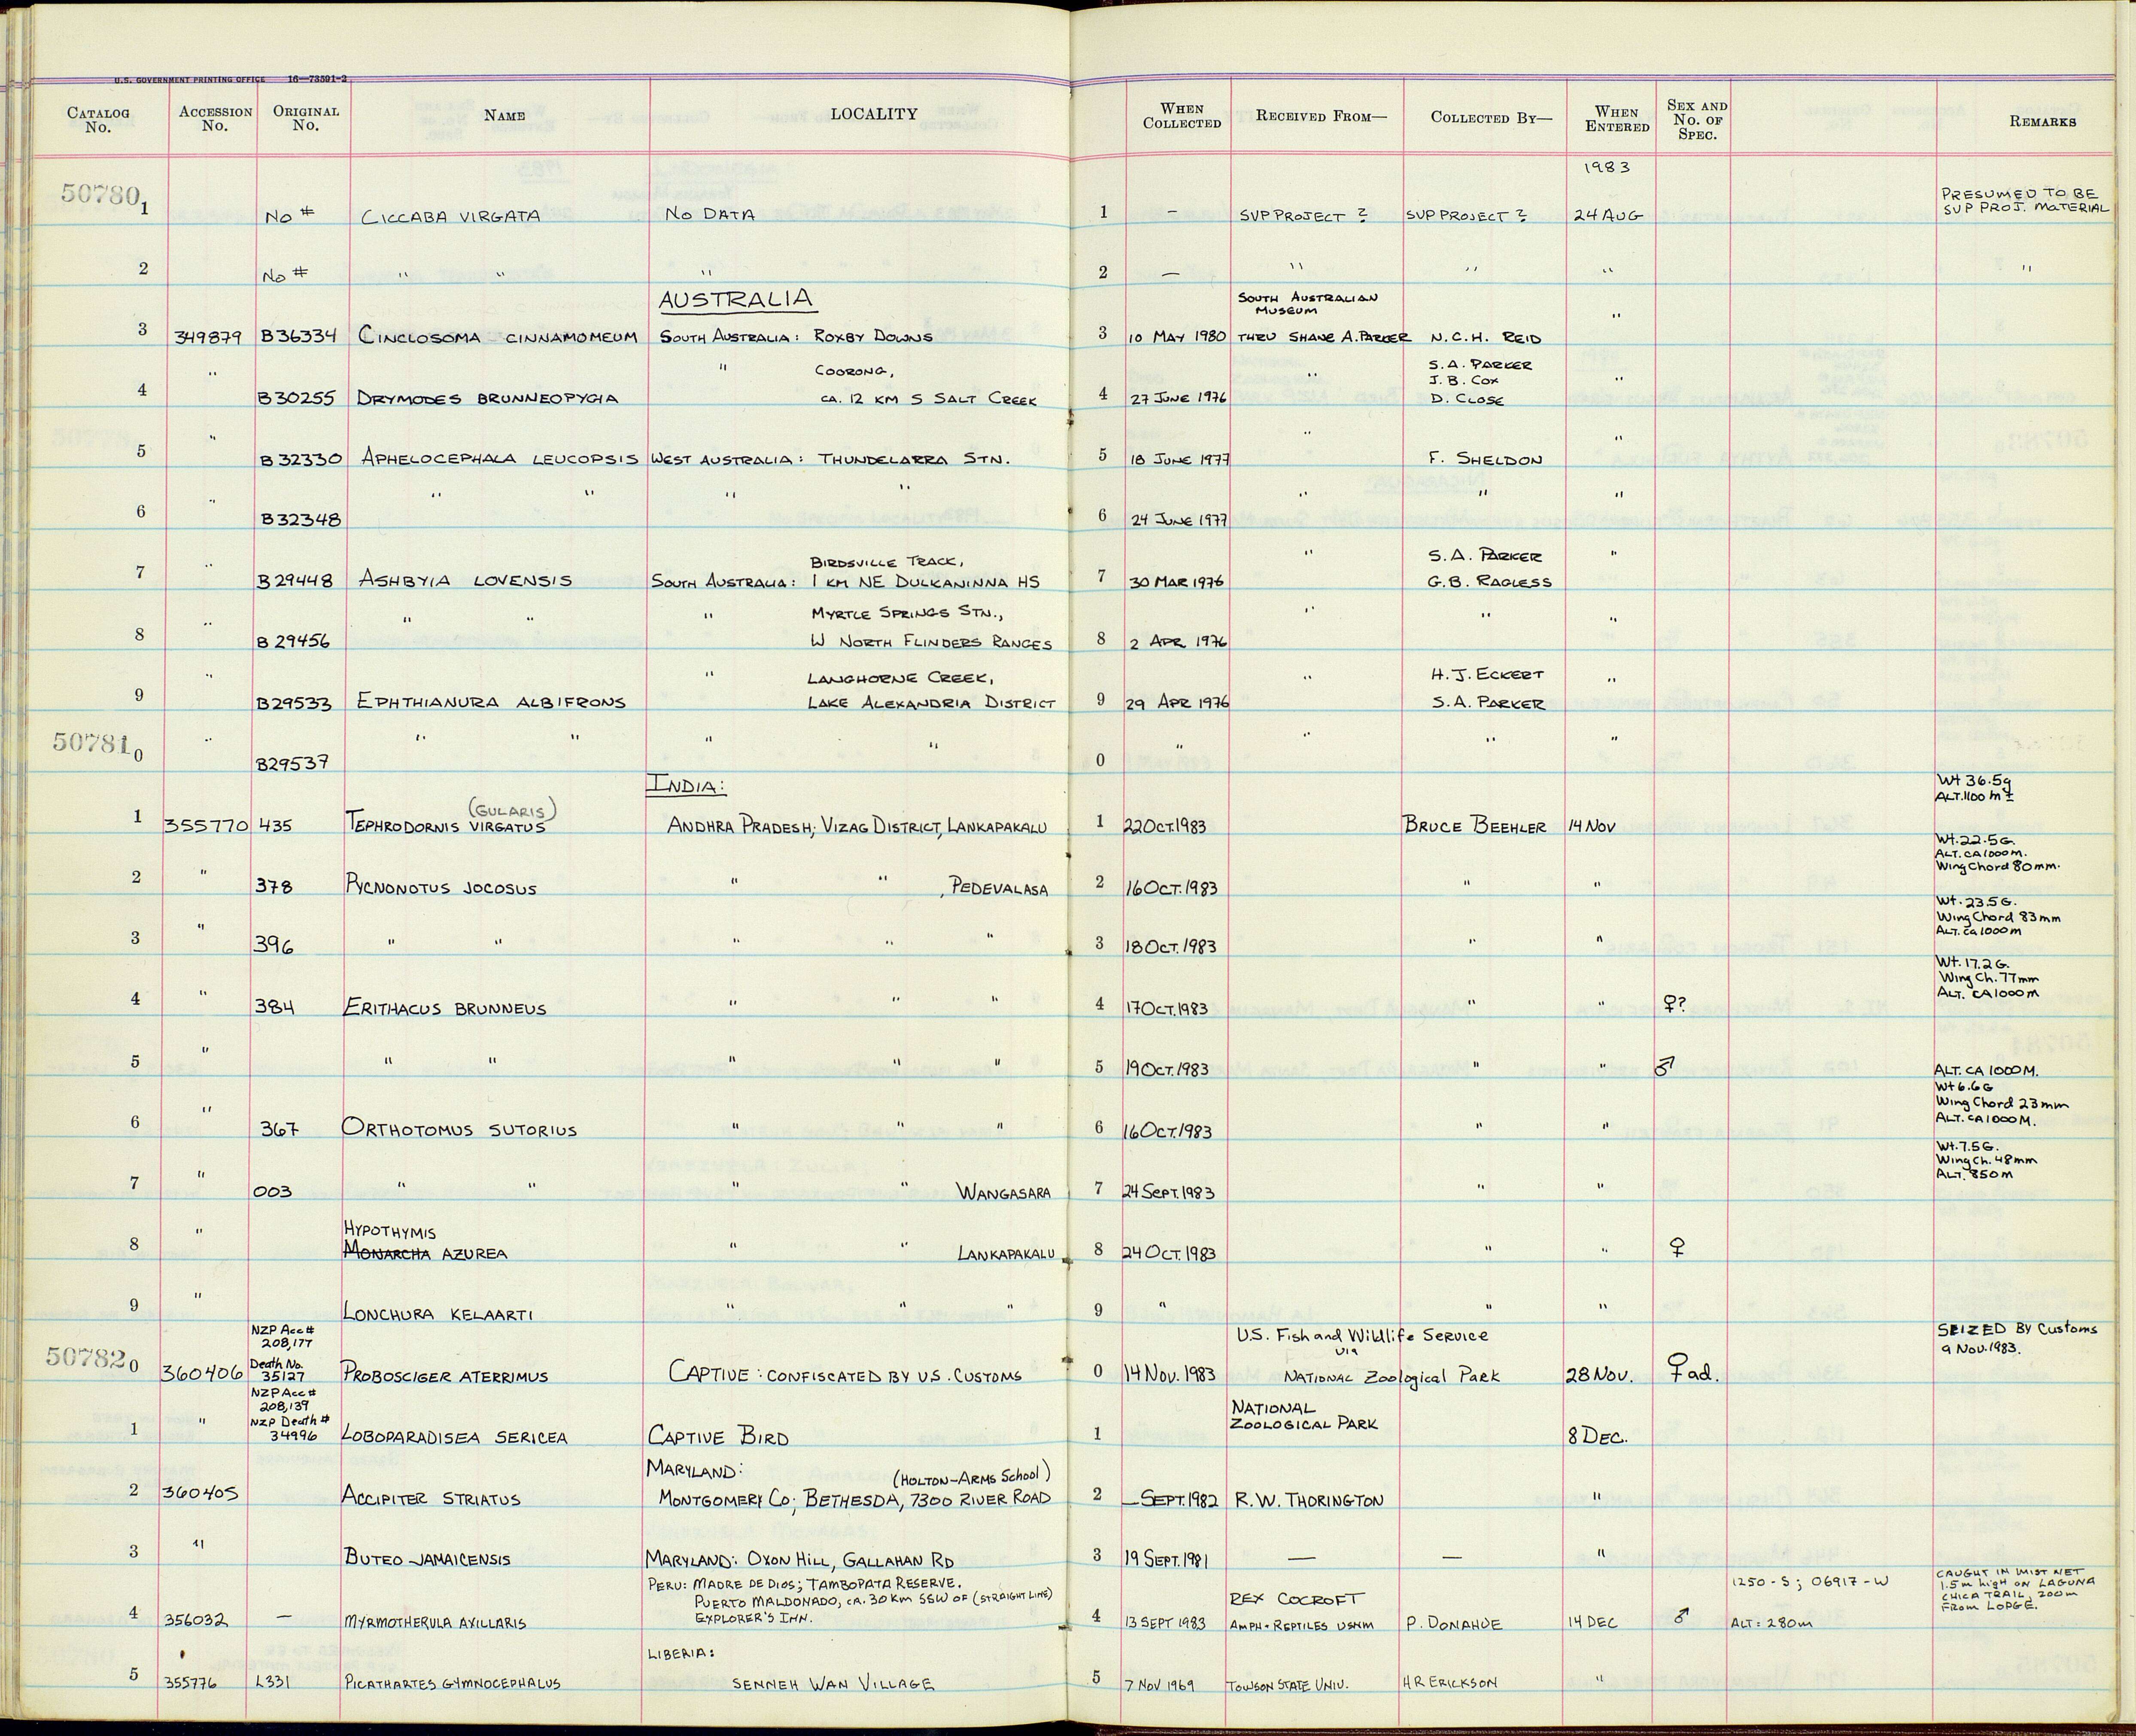 U.S. GOVERNMENT PRINTING OFFICE 16—73591-2
CATALOG No. ACCESSION No. ORIGINAL No. NAME LOCALITY WHEN COLLECTED RECEIVED FROM— COLLECTED BY— WHEN ENTERED SEX AND No. OF SPEC. REMARKS
1983
50780 1 No # CICCABA VIRGATA NO DATA 1 — SUP PROJECT ? SUP PROJECT ? 24 AUG PRESUMED TO BE SUP PROJ. MATERIAL
2 No # " " " 2 — " " " "
AUSTRALIA
3 349879 B36334 CINCLOSOMA CINNAMOMEUM SOUTH AUSTRALIA: ROXBY DOWNS 3 10 MAY 1980 SOUTH AUSTRALIAN MUSEUM THRU SHANE A. PARKER N.C.H. REID "
4 " B30255 DRYMODES BRUNNEOPYGIA " COORONG, CA. 12 KM S SALT CREEK 4 27 JUNE 1976 " S.A. PARKER J.B. COX D. CLOSE "
5 " B32330 APHELOCEPHALA LEUCOPSIS WEST AUSTRALIA: THUNDELARRA STN. 5 18 JUNE 1977 " F. SHELDON "
6 " B32348 " " " " 6 24 JUNE 1977 " " "
7 " B29448 ASHBYIA LOVENSIS SOUTH AUSTRALIA: BIRDSVILLE TRACK, 1 KM NE DULKANINNA HS 7 30 MAR 1976 " S.A. PARKER G.B. RAGLESS "
8 " B29456 " " " MYRTLE SPRINGS STN., W NORTH FLINDERS RANGES 8 2 APR 1976 " " "
9 " B29533 EPHTHIANURA ALBIFRONS " LANGHORNE CREEK, LAKE ALEXANDRIA DISTRICT 9 29 APR 1976 " H.J. ECKERT S.A. PARKER "
50781 0 " B29537 " " " " 0 " " " "
INDIA:
1 355770 435 TEPHRODORNIS VIRGATUS (GULARIS) ANDHRA PRADESH; VIZAG DISTRICT, LANKAPAKALU 1 22 OCT. 1983 BRUCE BEEHLER 14 NOV Wt 36.5g ALT. 1100 m ±
2 " 378 PYCNONOTUS JOCOSUS " " , PEDEVALASA 2 16 OCT. 1983 " " Wt. 22.5 G. ALT. CA 1000 M. Wing Chord 80 mm.
3 " 396 " " " " " 3 18 OCT. 1983 " " Wt. 23.5 G. Wing Chord 83 mm ALT. ca 1000 m
4 " 384 ERITHACUS BRUNNEUS " " " 4 17 OCT. 1983 " " ♀? Wt. 17.2 G. Wing Ch. 77 mm ALT. CA 1000 M
5 " " " " " " 5 19 OCT. 1983 " " ♂ ALT. CA 1000 M.
6 " 367 ORTHOTOMUS SUTORIUS " " " 6 16 OCT. 1983 " " Wt 6.6 G Wing Chord 23 mm ALT. CA 1000 M.
7 " 003 " " " " WANGASARA 7 24 SEPT. 1983 " " Wt. 7.5 G. Wing Ch. 48 mm ALT. 850 m
8 " HYPOTHYMIS MONARCHA AZUREA " " LANKAPAKALU 8 24 OCT. 1983 " " ♀
9 " LONCHURA KELAARTI " " " 9 " " "
50782 0 360406 NZP Acc # 208,177 Death No. 35127 PROBOSCIGER ATERRIMUS CAPTIVE: CONFISCATED BY U.S. CUSTOMS 0 14 NOV. 1983 U.S. Fish and Wildlife Service via NATIONAL Zoological Park 28 NOV. ♀ ad. SEIZED BY Customs 9 Nov. 1983.
1 " NZP Acc # 208,139 NZP Death # 34996 LOBOPARADISEA SERICEA CAPTIVE BIRD 1 NATIONAL ZOOLOGICAL PARK 8 DEC.
2 360405 ACCIPITER STRIATUS MARYLAND: MONTGOMERY CO; BETHESDA, 7300 RIVER ROAD (HOLTON-ARMS School) 2 — SEPT. 1982 R.W. THORINGTON "
3 " BUTEO JAMAICENSIS MARYLAND: OXON HILL, GALLAHAN RD 3 19 SEPT. 1981 — — "
4 356032 — MYRMOTHERULA AXILLARIS PERU: MADRE DE DIOS; TAMBOPATA RESERVE. PUERTO MALDONADO, CA. 30 KM SSW OF (STRAIGHT LINE) EXPLORER'S INN. 4 13 SEPT 1983 REX COCROFT AMPH + REPTILES USNM P. DONAHUE 14 DEC ♂ 1250 - S; 06917 - W ALT: 280m CAUGHT IN MIST NET 1.5 m high ON LAGUNA CHICA TRAIL, 200m FROM LODGE.
5 355776 L331 PICATHARTES GYMNOCEPHALUS LIBERIA: SENNEH WAN VILLAGE 5 7 NOV 1969 TOWSON STATE UNIV. H R ERICKSON "